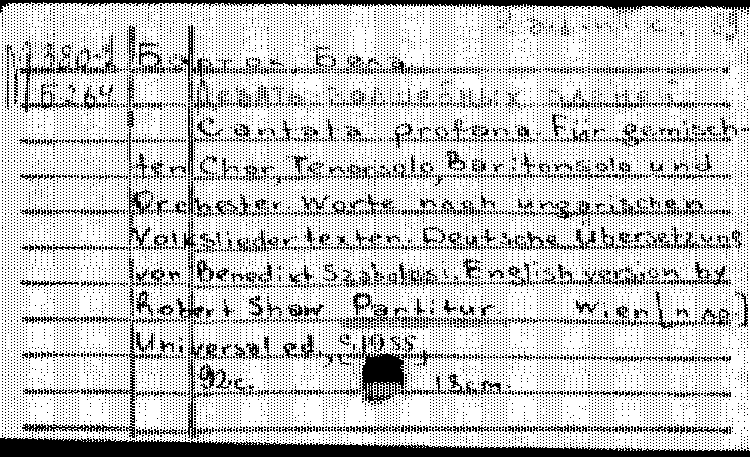 Барток, Бела.
Cantata profana. Für gemisch-
ten Chor, Tenorsolo, Baritonsolo und
Orchester. Worte nach ungarischen
Volksliedertexten. Deutsche Übersetzung
von Benedikt Szabolcsi. English version by
Robert Show Partitur. Wien [n др.]
Universal ed., c. 1955,
92 c. 18 cm.